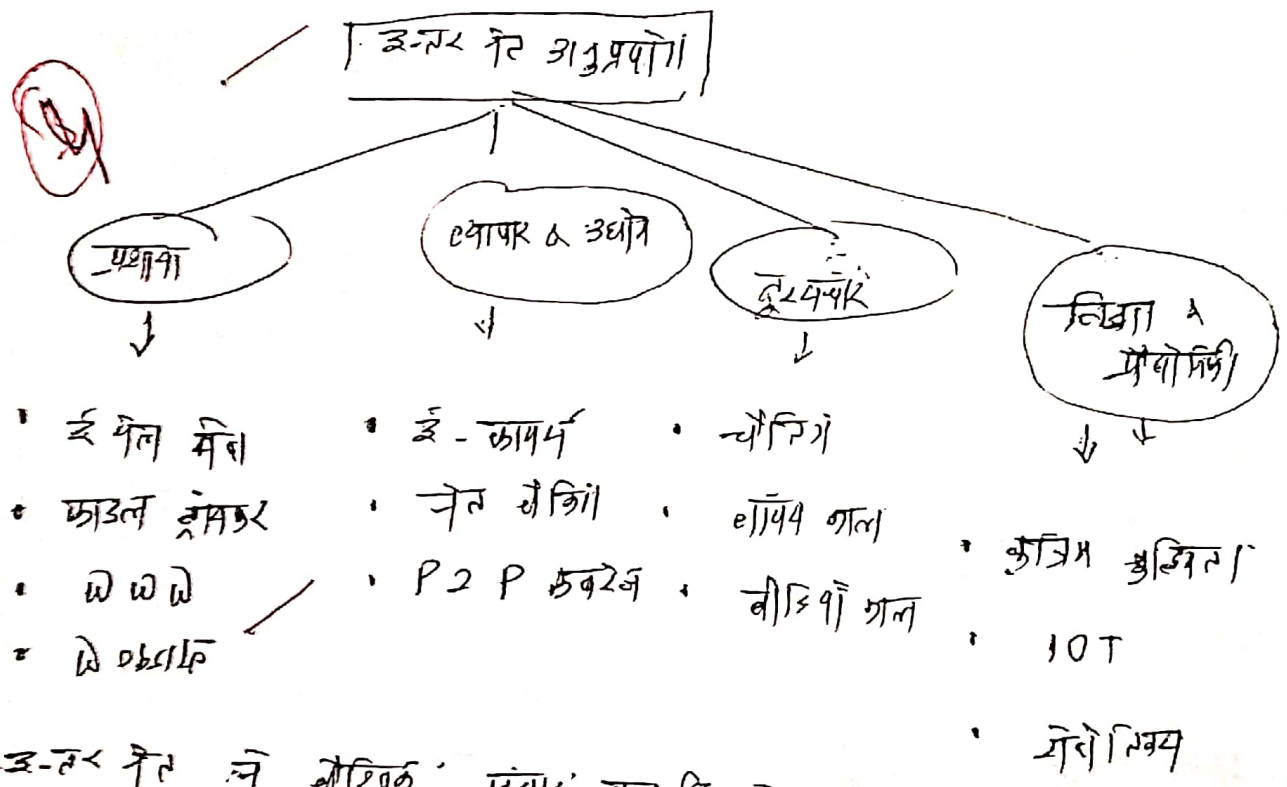 इन्टर नेट अनुप्रयोग
प्रशासन
व्यापार & उद्योग
दूरसंचार
विज्ञान &
प्रौद्योगिकी
• ई मेल सेवा
• फाइल ट्रांसफर
• W W W
• Website
• ई-कामर्स
• नेट बैंकिंग
• P 2 P
• चैटिंग
• वॉयस काल
• वीडियो काल
• कृत्रिम बुद्धिमत्ता
• IOT
• रोबोटिक्स
इन्टर नेट ने वैश्विक संचार